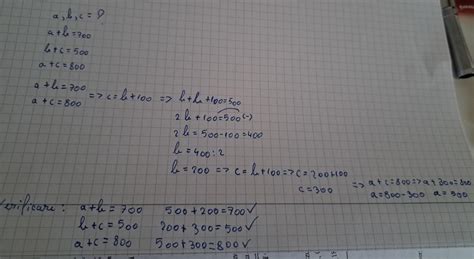 a, b, c = ?
a+b=700
b+c=500
a+c=800
a+b=700
a+c=800 => c=b+100 => b+b+100=500
2b+100=500 (-)
2b=500-100=400
b=400:2
b=200 => c=b+100 => c=200+100
c=300 => a+c=800 => a+300=800
a=800-300 a=500
Verificare: a+b=700 500+200=700 ✓
b+c=500 200+300=500 ✓
a+c=800 500+300=800 ✓